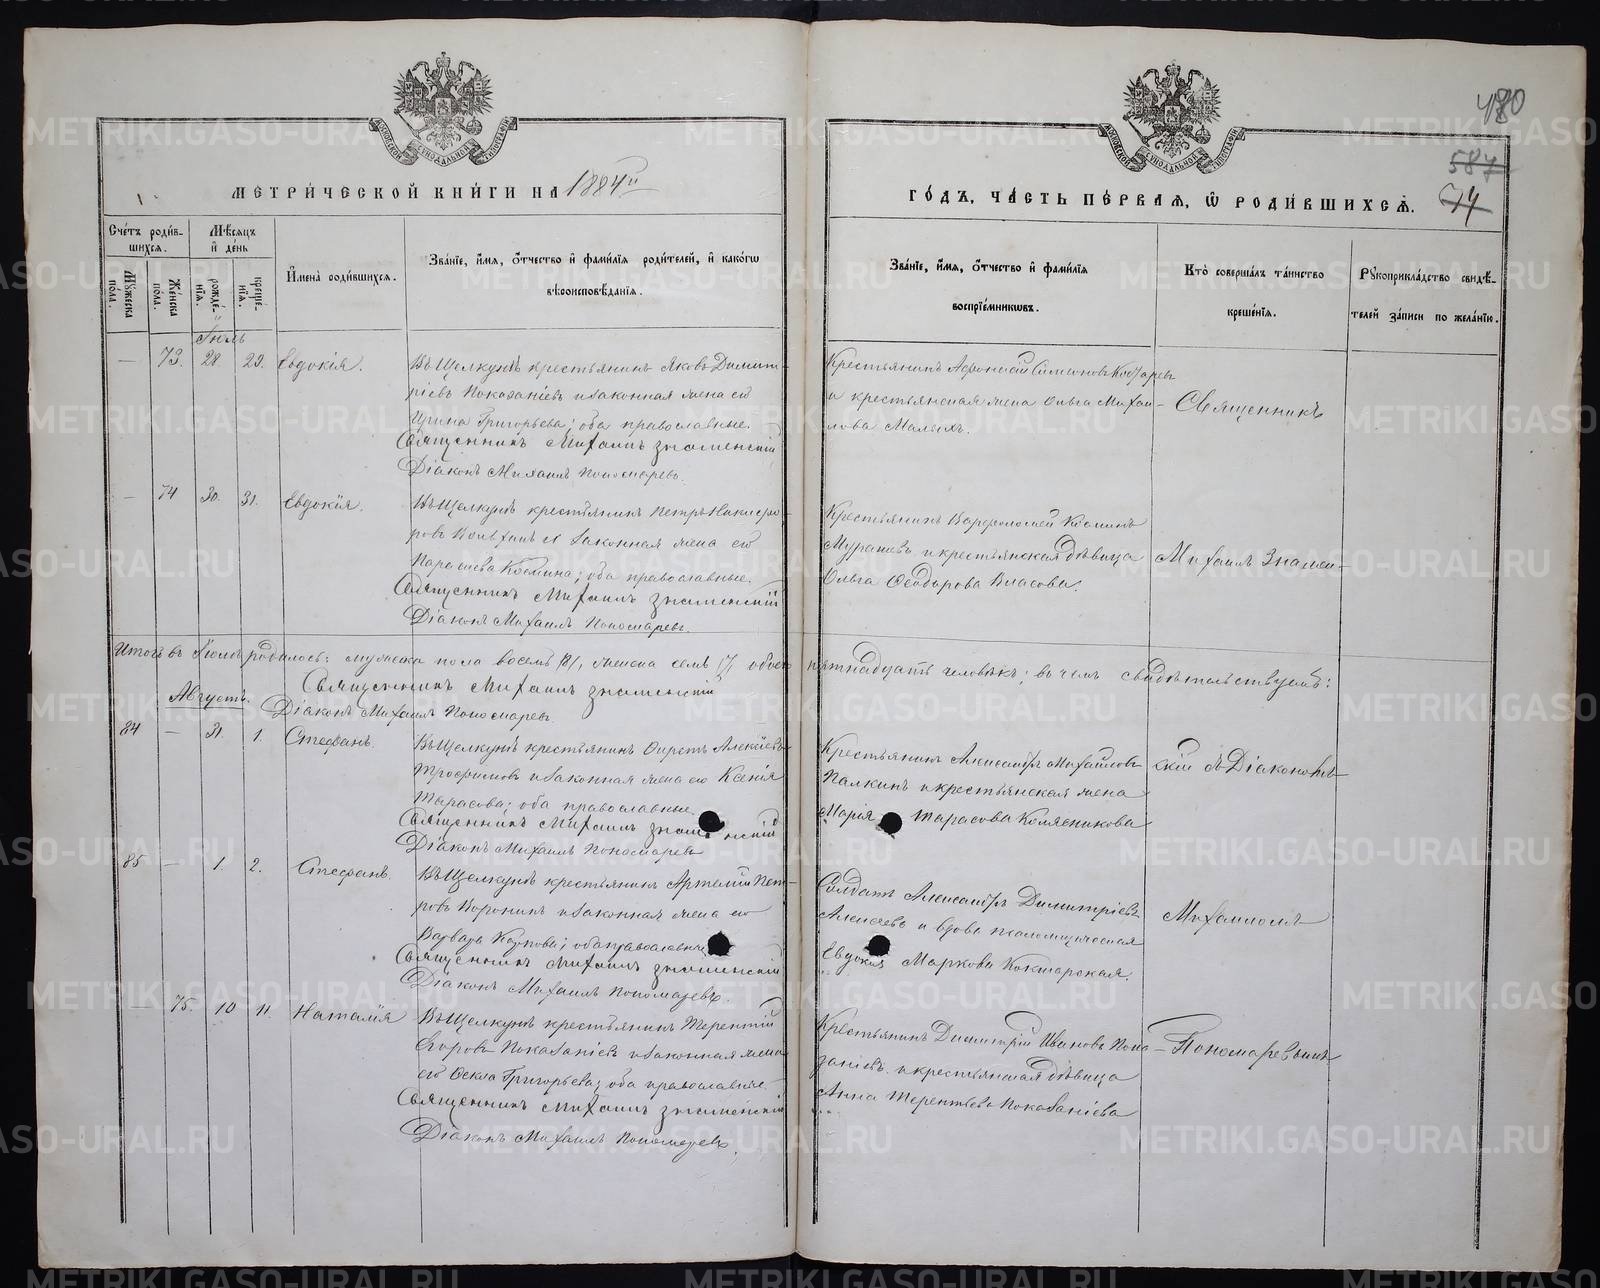 480
587
74
МОСКОВСКОЙ СѴНОДАЛЬНОЙ ТИПОГРАФІИ
МОСКОВСКОЙ СѴНОДАЛЬНОЙ ТИПОГРАФІИ
МЕТРИ́ЧЕСКОЙ КНИ́ГИ НА 1884й
ГО́ДЪ, ЧА́СТЬ ПЕ́РВАѦ, Ѡ РОДИ́ВШИХСѦ.
Сче́тъ роди́в-
шихсѧ.
Мѣ́сѧцъ
и҆ де́нь
Мꙋ́жеска по́ла.
Же́нска по́ла.
рожде́-
нїѧ.
креще́-
нїѧ.
И҆мена̀ роди́вшихсѧ.
Зва́нїе, и҆́мѧ, ѻ҆́тчество и҆ фами́лїѧ роди́телей, и҆ како́гѡ
вѣроисповѣ́данїѧ.
Зва́нїе, и҆́мѧ, ѻ҆́тчество и҆ фами́лїѧ
воспрїе́мникѡвъ.
Кто̀ соверша́лъ та́инство
креще́нїѧ.
Рꙋкоприкла́дство свидѣ́-
телей за́писи по жела́нїю.
Іюль
— 73. 28. 29. Евдокія.
Въ Щелкунѣ крестьянинъ Яковъ Димит-
ріевъ Показаніевъ и законная жена его
Ирина Григорьева; оба православные.
Священникъ Михаилъ Знаменскій
Діаконъ Михаилъ Пономаревъ.
Крестьянинъ Афонасій Симеоновъ
и крестьянская жена Ольга Михаи-
лова Малыхъ.
Священникъ
— 74 30. 31. Евдокія.
Въ Щелкунѣ крестьянинъ Петръ Никифо-
ровъ и законная жена его
Параскева Косьмина; оба православные.
Священникъ Михаилъ Знаменскій
Діаконъ Михаилъ Пономаревъ.
Крестьянинъ Варфоломей Косминъ
и крестьянская дѣвица
Ольга Ѳеодорова Власова.
Михаилъ Знамен-
Итого въ Іюлѣ родилось: мужеска пола восемь /8/, женска семь /7/ обоего пятнадцать человѣкъ; въ чемъ свидѣтельствуемъ:
Священникъ Михаилъ Знаменскій
Діаконъ Михаилъ Пономаревъ
Августъ.
84 — 31. 1. Стефанъ.
Въ Щелкунѣ крестьянинъ Алексіевъ
Трофимовъ и законная жена его Ксенія
Тарасова; оба православные
Священникъ Михаилъ Знаменскій
Діаконъ Михаилъ Пономаревъ
Крестьянинъ Александръ Михайловъ
Палкинъ и крестьянская жена
Марія Тарасова Колясникова
скій съ Діакономъ
85 — 1. 2. Стефанъ.
Въ Щелкунѣ крестьянинъ Артемій Пет-
ровъ Воронинъ и законная жена его
Варвара Карпова; оба православные
Священникъ Михаилъ Знаменскій
Діаконъ Михаилъ Пономаревъ.
Солдатъ Александръ Димитріевъ
Алексѣевъ и вдова псаломщическая
Евдокія Маркова Кокшарская.
Михаиломъ
— 75. 10 11. Наталія
Въ Щелкунѣ крестьянинъ Терентій
Егоровъ Показаніевъ и законная жена
его Ѳекла Григорьева; оба православные.
Священникъ Михаилъ Знаменскій
Діаконъ Михаилъ Пономаревъ.
Крестьянинъ Димитрій Ивановъ Пока-
заніевъ и крестьянская дѣвица
Анна Терентьева Показаніева
Пономаревымъ
METRIKI.GASO-URAL.RU